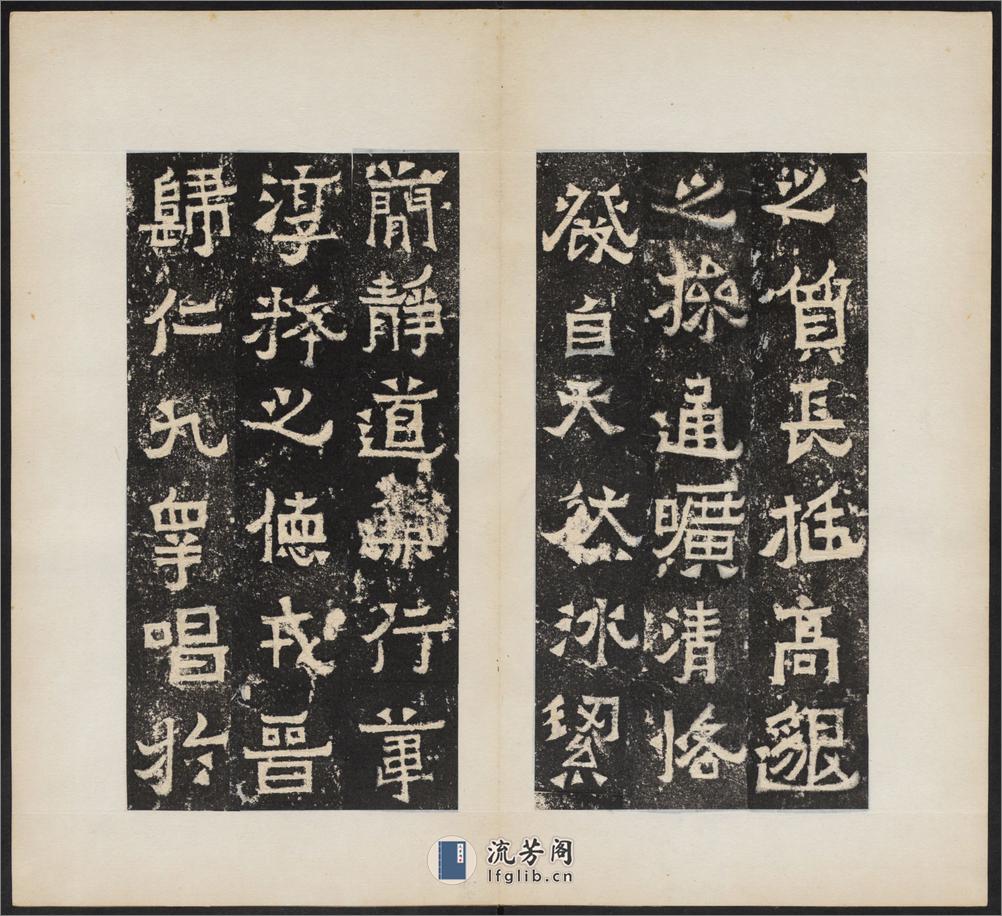 之質長挺高邈
之操通曠清恪
發自天然冰絜
簡靜道兼行葦
淳粹之德戎晉
歸仁九皋唱於
流芳阁
lfglib.cn